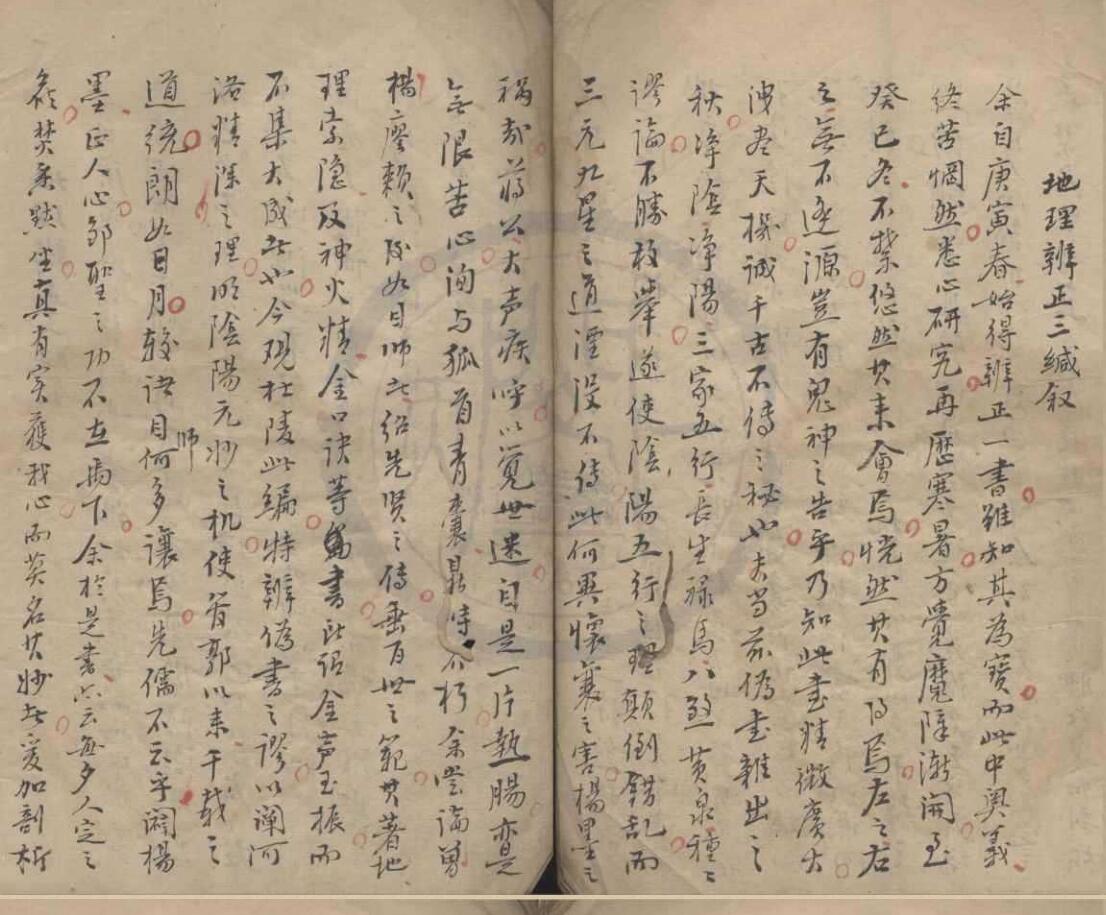 地理辨正三緘叙
余自庚寅春始得辨正一書雖知其為寳而此中奥義
終苦惘然悉心研究再歷寒暑方覺魔障漸開至
癸巳冬不禁悠然其来會焉恍然其有得焉左之右
之無不逢源豈有鬼神之告乎乃知此書精微廣大
洩盡天機誠千古不傳之秘也夫當茲偽書雜出之
秋净陰净陽三家五行長生禄馬八煞黄泉種〻
謬論不勝枚舉遂使陰陽五行之理顛倒錯乱而
三元九星之道湮没不傳此何異懷襄之害楊墨之
禍哉蒋公大声疾呼以覚世迷自是一片熱腸亦是
無限苦心洵与狐首青囊是時不朽余嘗論曽
楊廖頼之後如目师者紹先贤之傳垂百世之範其著地
理索隐及神火精金口诀等書詎金声玉振而
不集大成者也今观杜陵此編特辨偽書之謬以阐河
洛精深之理明陰陽元妙之机使管郭以来千載之
道统朗如日月較诸目师何多讓焉先儒不云乎闢楊
墨正人心鄒聖之功不在禹下余於是書亦云每夕人定之
後焚香默坐真有实獲我心而莫名其妙者爰加剖析